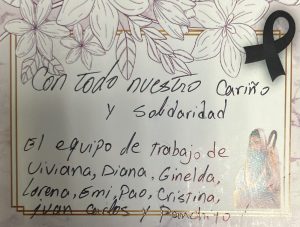 Con todo nuestro Cariño
y Solidaridad
El equipo de trabajo de
Viviana, Diana, Ginelda,
Lorena, Emi, Pao, Cristina,
Juan Carlos y